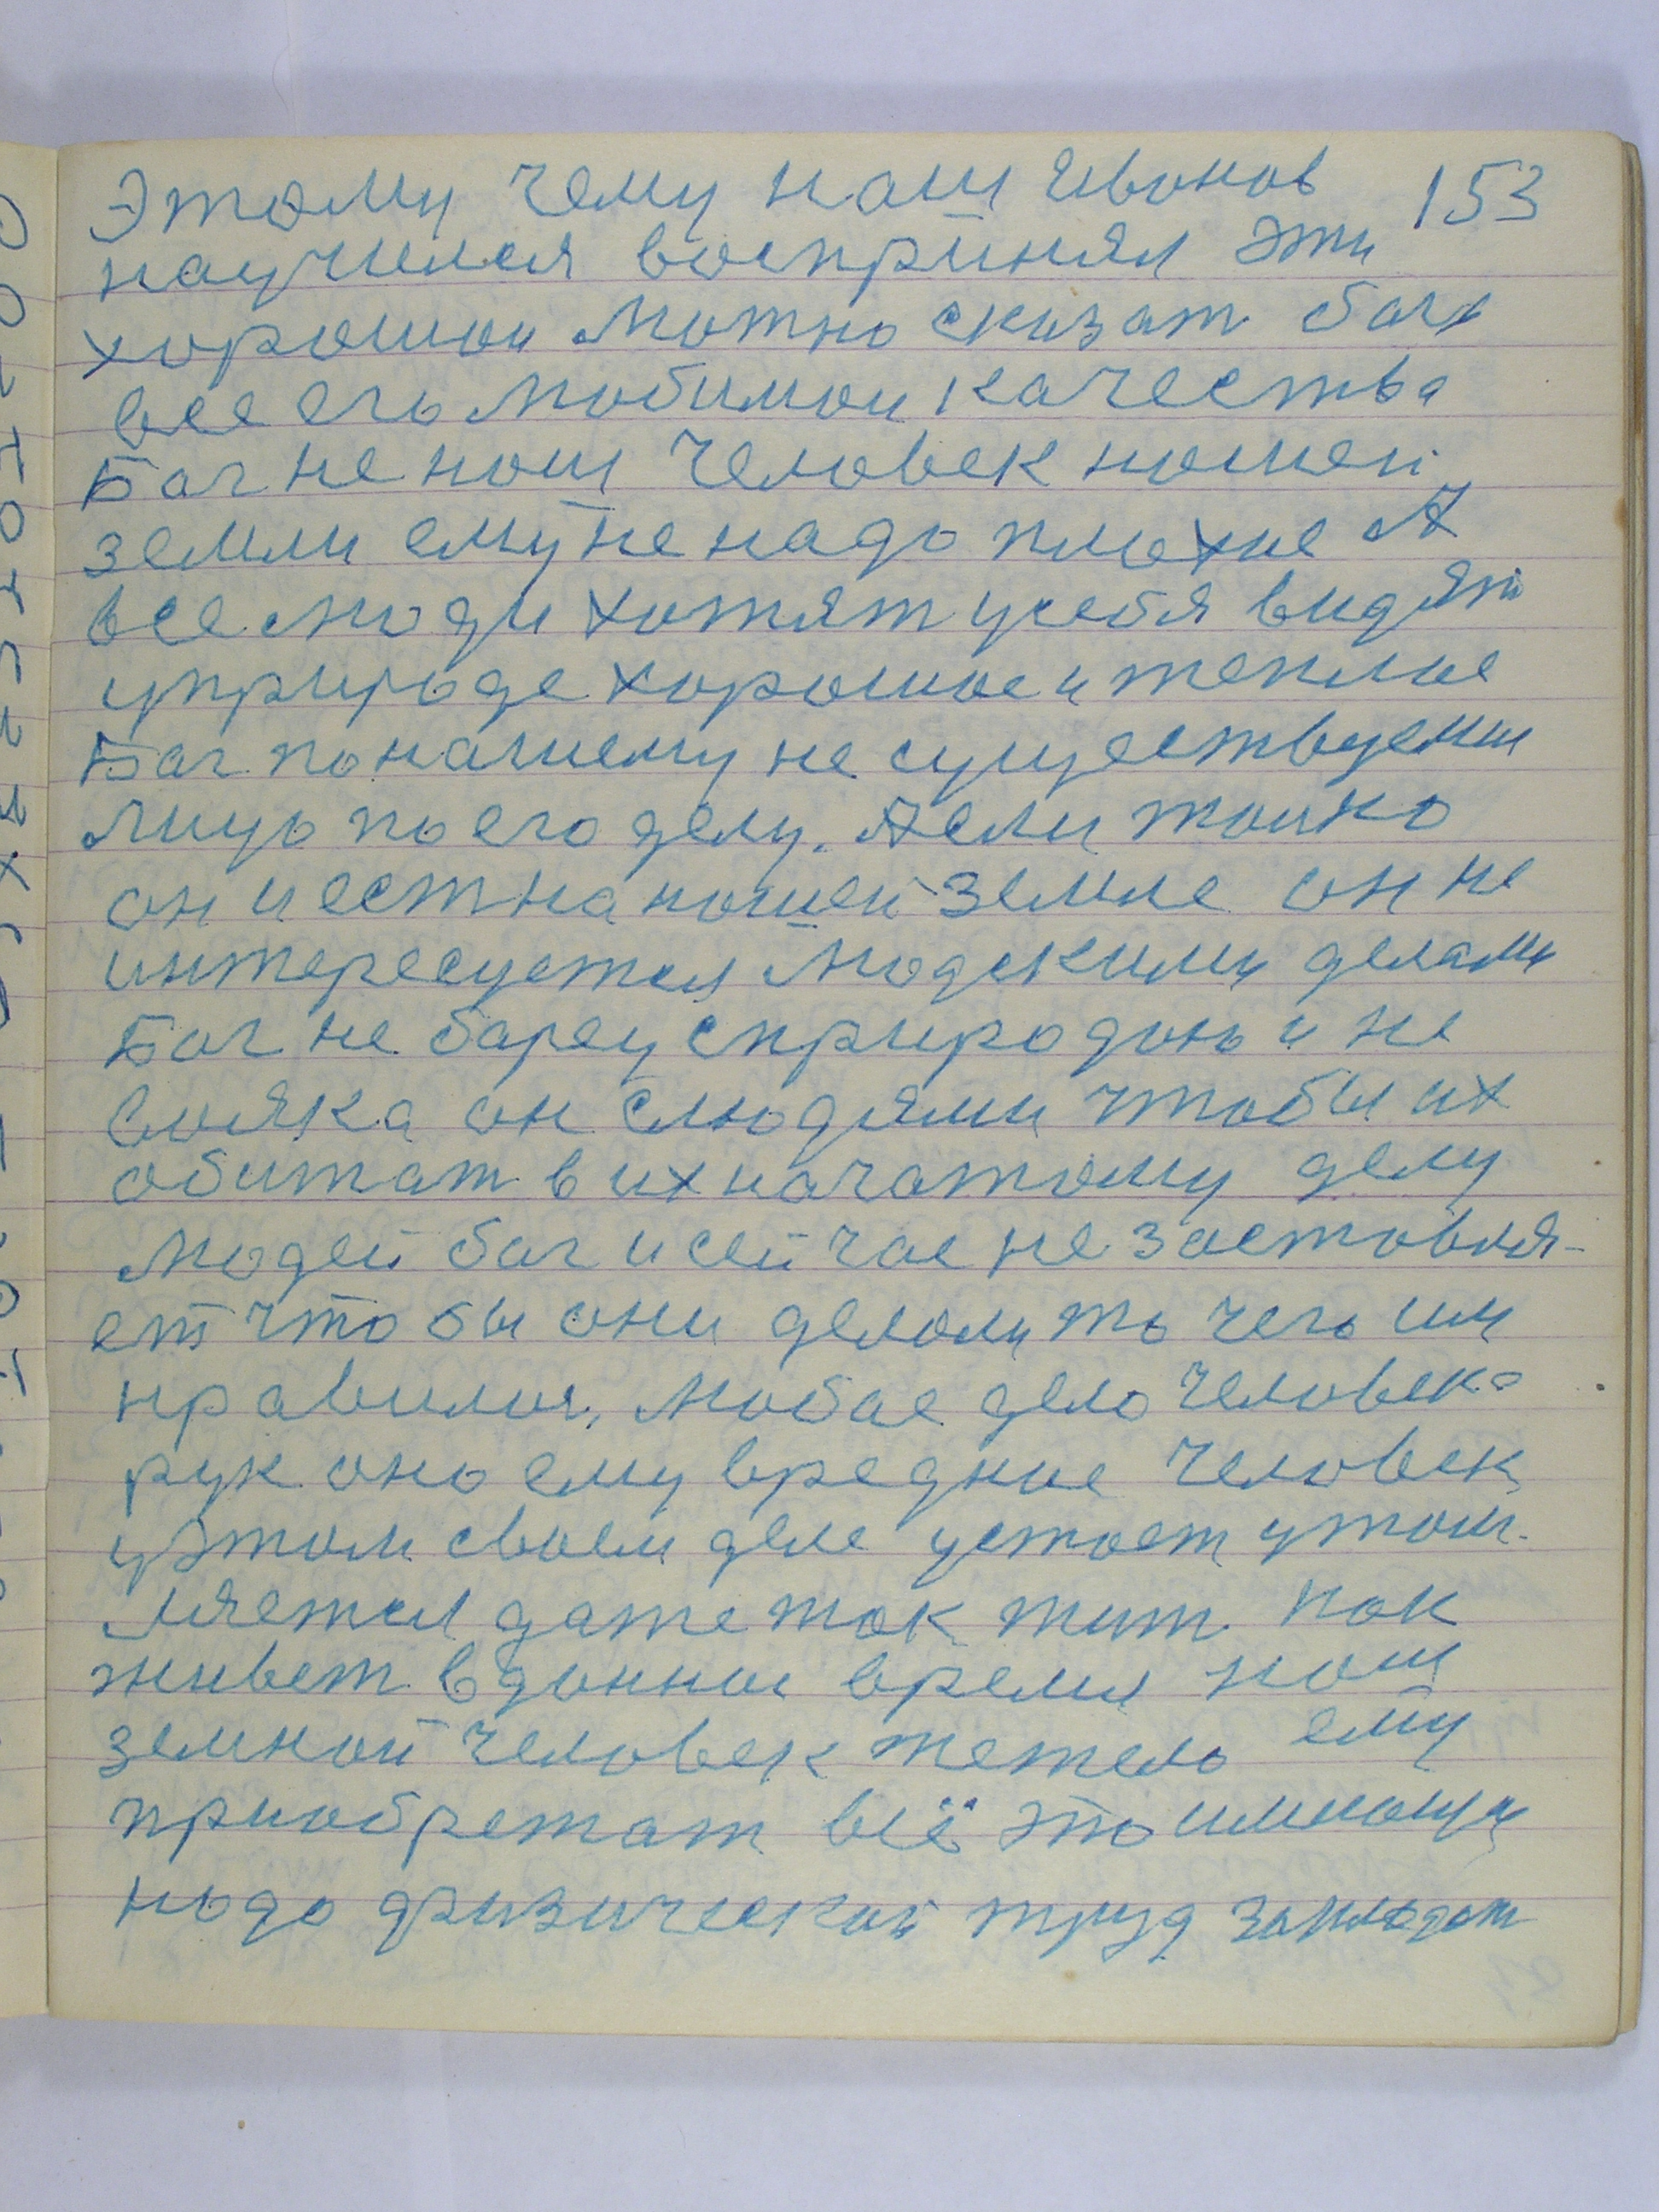 Этому чему наш Ивонов 153
научился воспринял эти
хорошои можно сказат бага
все его любимои качества
Бог не нош человек ношей
земли ему не надо плохие А
все люди хотят у себя видят
у природе хорошое и теплое
Бог по нашему не существуеши
лицо по его делу. А если толко
он и ест на ношей земле он не
интересуется людскими делами
Бог не барец с природою и не
вояка он с людями чтобы их
обижат в их начатому делу
людей бог и сейчас не заставля-
ет что бы они делали то чего им
нравился, любое дело человека
рук оно ему вредное человек
у этом своем деле устает утом-
ляется даже так жит как
живет в донное время нош
земной человек тежело ему
приобретат всё это именощи
надо физический труд